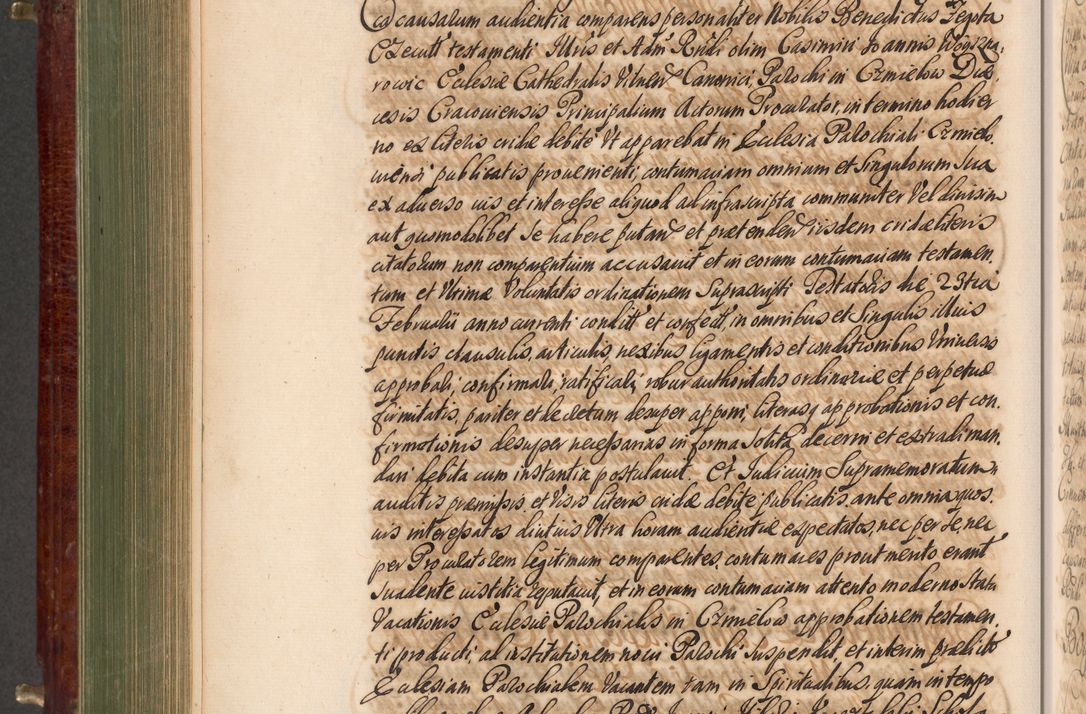 co causarum audientia comparens personaliter Nobilis Benedictus Zegota
Executt testamenti Illris et Adm Rndi olim Casimiri Joannis Woysna,
rowic Ecclesiæ Cathedralis Vilnen Canonici, Parochi in Czmielow Diæ,
cesis Cracoviensis Principalium Actorum Procurator, in termino hodier
no ex literis cridæ debite Ut apparebat in Ecclesia Parochiali Czmielo,
viensi publicatis provenienti, contumaciam omnium et Singulorum Sua
ex adverso ius et interesse aliquod ad infrascripta communiter Vel divisim
aut quomodolibet Se habere putan et prætenden iisdem cridæ literis
citatorum non comparentium accusavit et in eorum contumaciam testamen,
tum et Ultimæ Voluntatis ordinationem Suprascripti Testatoris die 23tia
Februarii anno currenti condit et confect, in omnibus et Singulis illius
punctis clausulis, articulis, nexibus ligamentis et conditionibus Universo
approbari, confirmari, ratificari, robur authoritatis ordinariæ et perpetuæ
firmitatis, pariter et decretum, desuper apponi, literasq approbationis et con,
firmationis desuper necessarias in forma Solita decerni et extradi man,
dari debita cum instantia postulavit. Et Judicium Supramemoratum
auditis præmissis, et Visis literis cridæ debite publicatis, ante omnia quos,
vis interessatos diutius Ultra horam audientiæ expectatos, nec per Se, nec
per Procuratorem legitimum comparentes, contumaces prout merito erant
Suadente iustitia reputavit, et in eorum contumaciam attento moderno Statu
Vacationis Ecclesiæ Parochialis in Czmielow approbationem testamen,
ti producti, ad institutionem novi Parochi Suspendit, et interim prælicto
Ecclesiam Parochialem Vacantem tam in Spiritualibus, quam in tempo